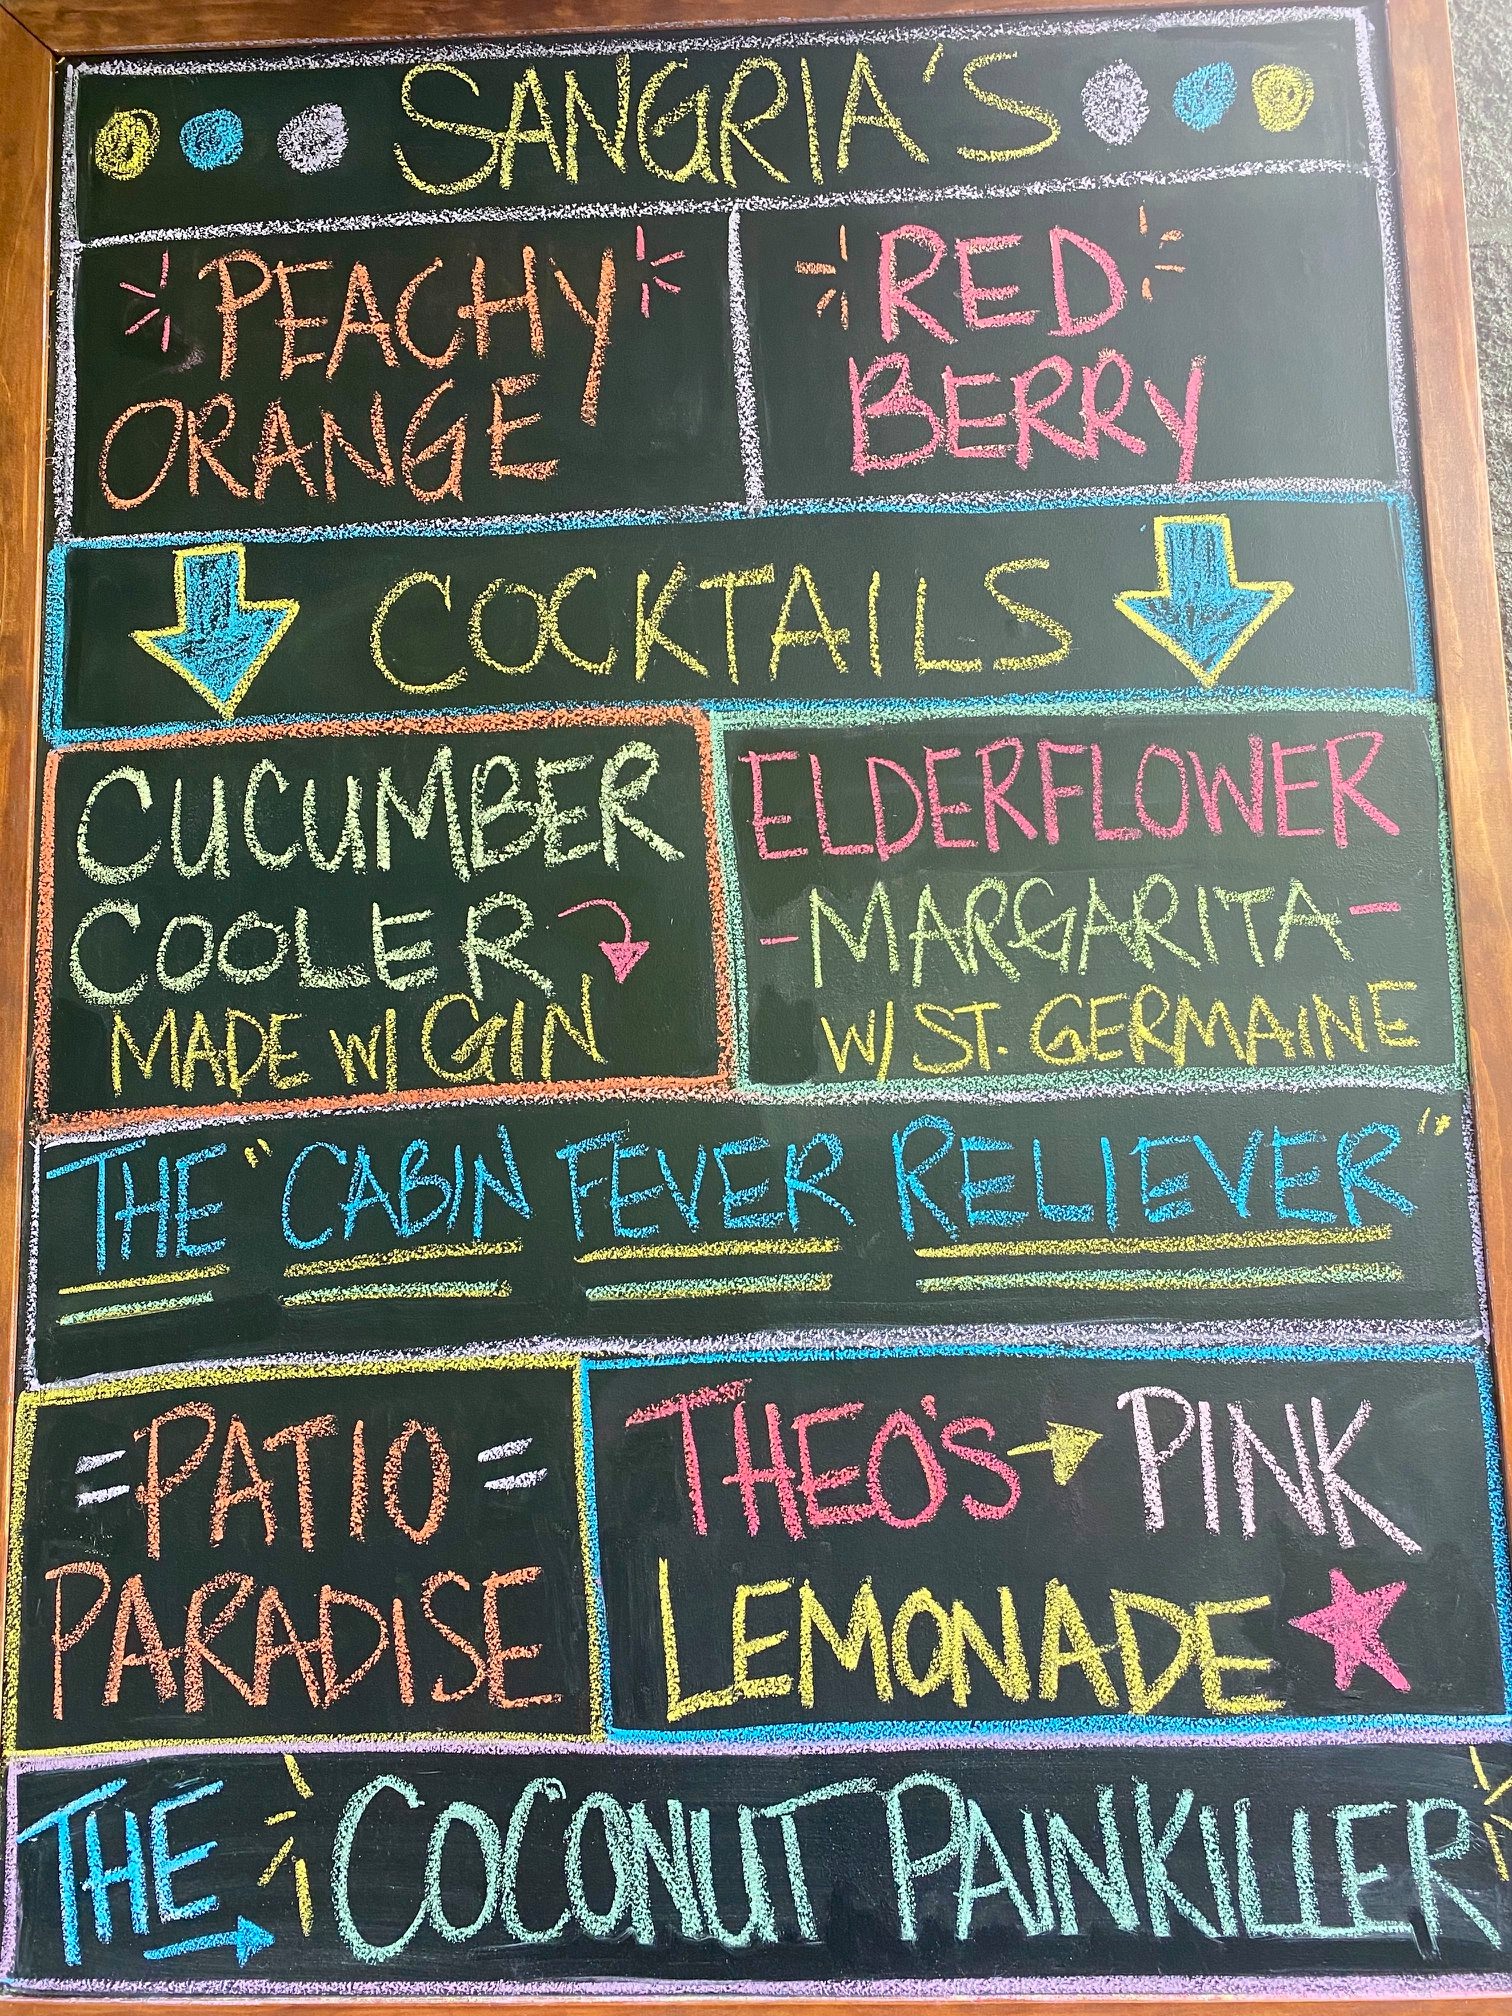 SANGRIA'S
PEACHY
ORANGE
RED
BERRY
COCKTAILS
CUCUMBER
COOLER
MADE W/ GIN
ELDERFLOWER
-MARGARITA-
W/ ST. GERMAINE
THE "CABIN FEVER RELIEVER"
=PATIO=
PARADISE
THEO'S → PINK
LEMONADE ★
THE COCONUT PAINKILLER